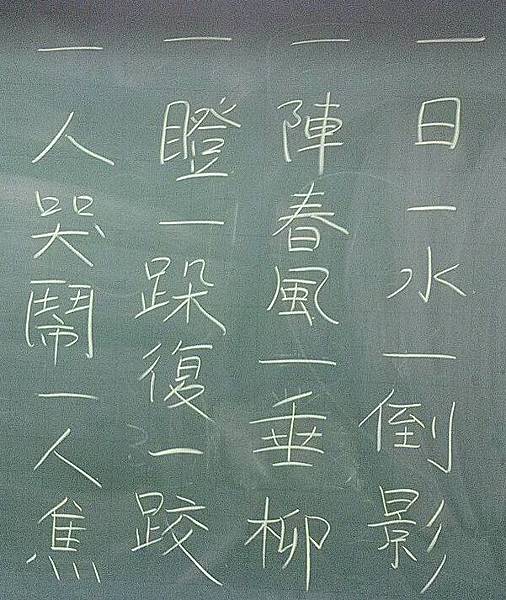 一日一水一倒影
一陣春風一垂柳
一瞪一跺復一跤
一人哭鬧一人焦